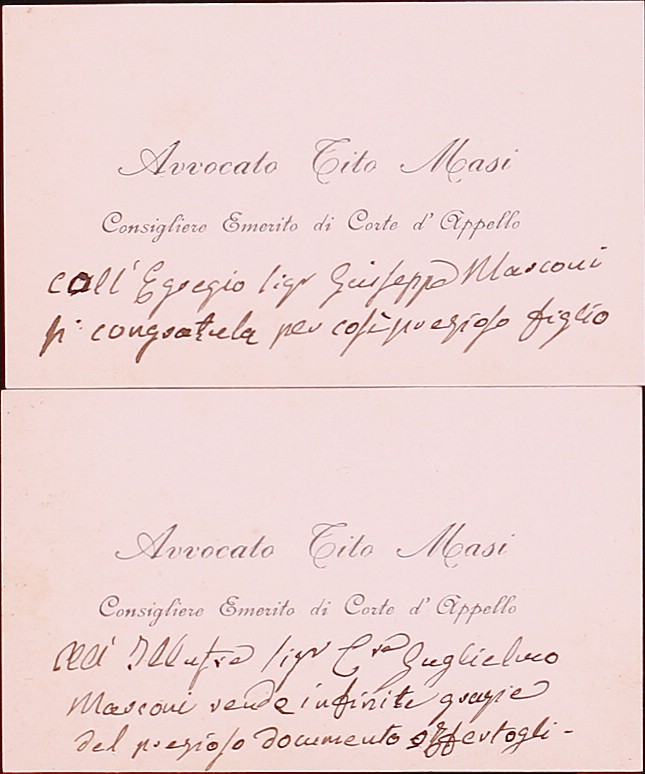 Avvocato Tito Masi
Consigliere Emerito di Corte d'Appello
coll'Egregio sigr Giuseppe Marconi
si congratula per così prezioso figlio
Avvocato Tito Masi
Consigliere Emerito di Corte d'Appello
all'Illustre sigr Cre Guglielmo
Marconi rende infinite grazie
del prezioso documento offertogli -